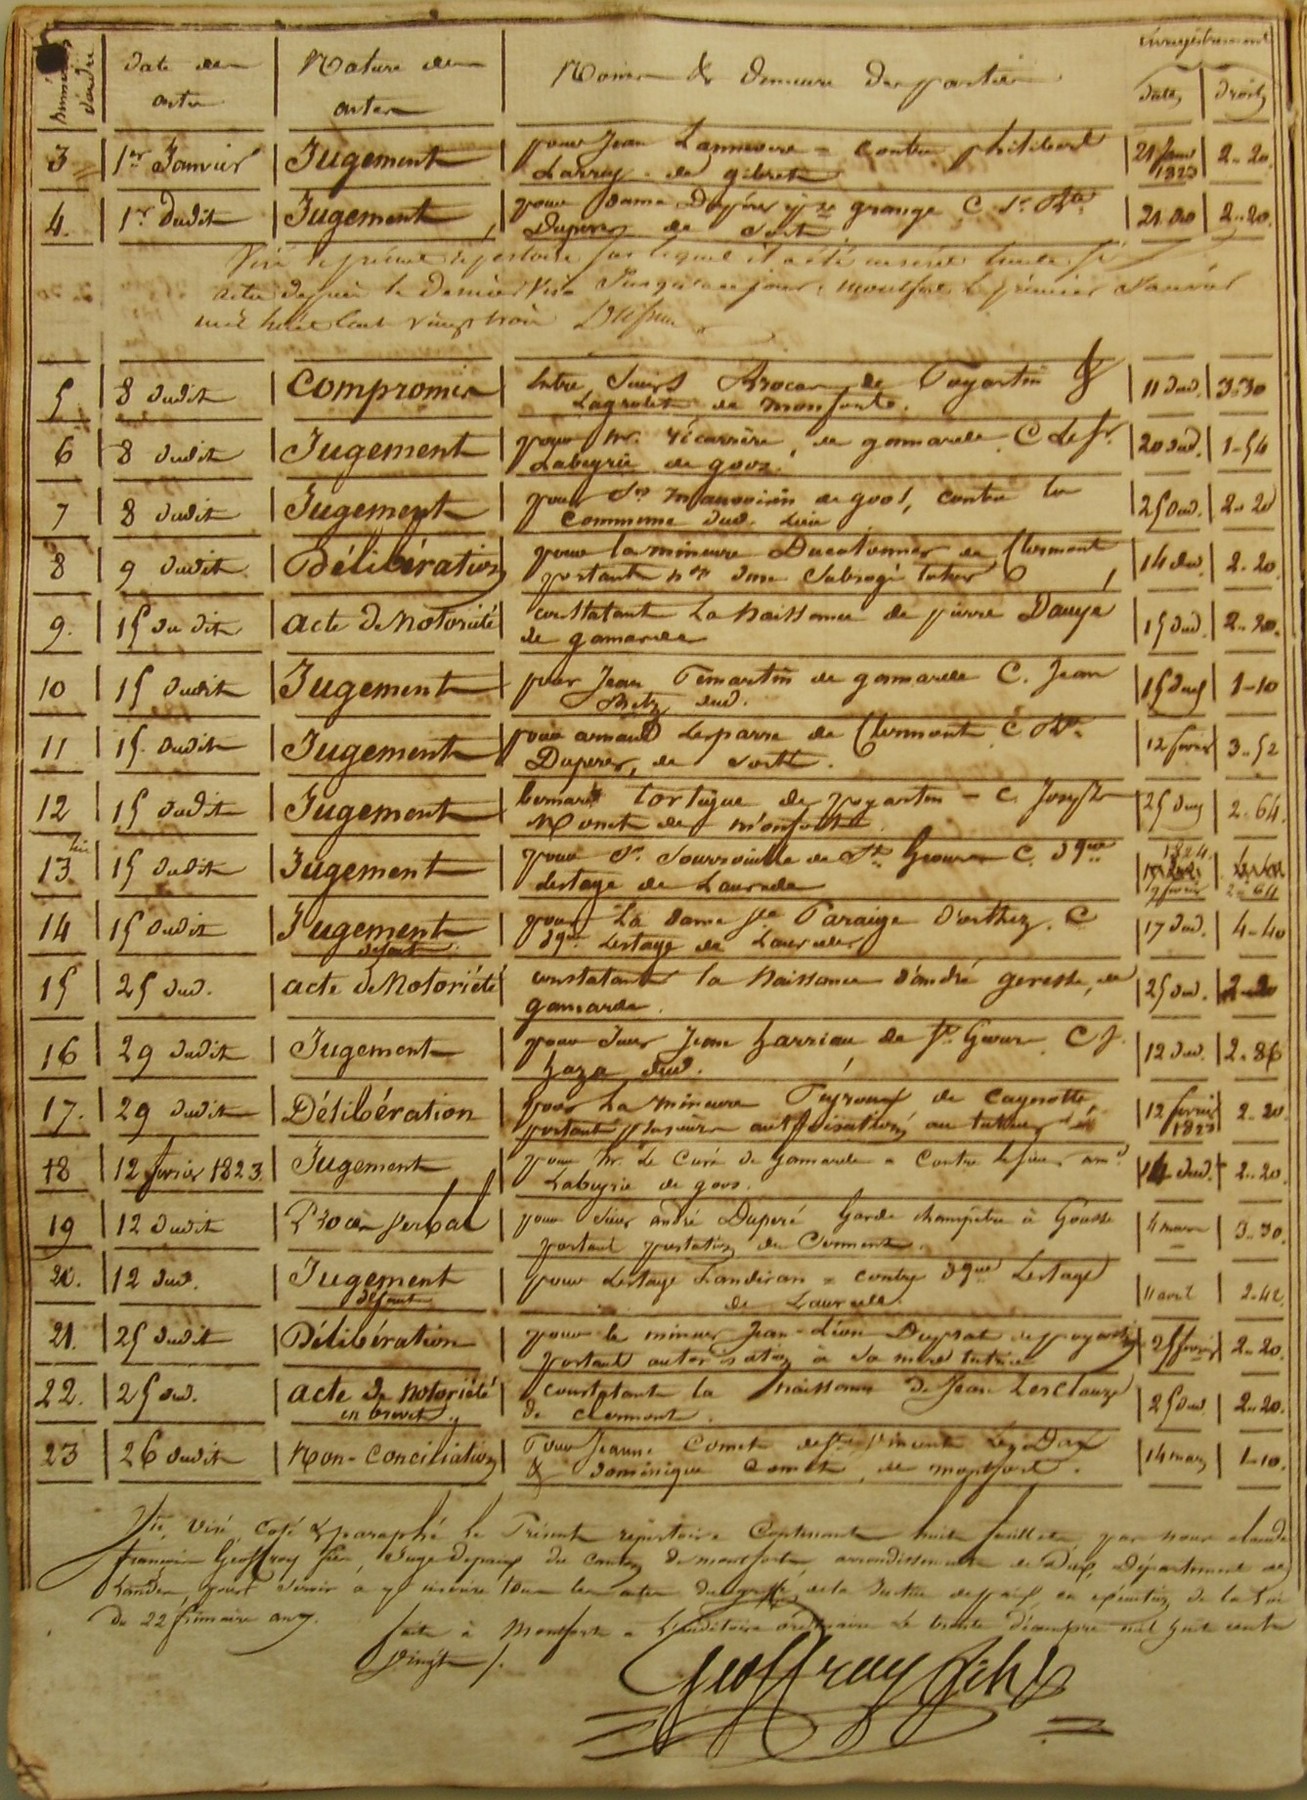 Numéros d'ordre | Date des actes | Nature des actes | Noms & demeure des parties | Enregistrement
Date | Droits
3 | 1er Janvier | Jugement | pour Jean Lannevere = contre philibert | 21 janv 1823 | 2-20
Larrey de gibret
4. | 1er dudit | Jugement | pour dame Dupérer grange C. Sr. | 21 do | 2-20
Duperer de Sort
Visé le présent répertoire sur lequel il a été inséré
actes depuis le dernier Visa Jusqu'à ce jour. montfort le premier Janvier
mil huit Cent vingt trois
5 | 8 dudit | Compromis | Entre Sieurs de Poyartin & | 11 dud. | 3-30
de montfort.
6 | 8 dudit | Jugement | pour Mr. de gamarde C. le Sr. | 20 dud. | 1-54
Labeyrie de goos.
7 | 8 dudit | Jugement | pour Sr de goos, contre la | 25 dud. | 2-20
Commune dud. Lieu
8 | 9 dudit | Délibération | pour la mineure de Clermont | 14 dud. | 2-20
portant non d'un Subrogé tuteur
9. | 15 du dit | acte de Notoriété | constatant la Naissance de pierre Dauga | 15 dud. | 2-20.
de gamarde
10 | 15 dudit | Jugement | pour Jean de gamarde C. Jean | 15 dud | 1-10
Betz dud.
11 | 15 dudit | Jugement | pour arnaud Lesparre de Clermont C. | 12 fevrier | 3-52
Duperer, de Sort.
12 | 15 dudit | Jugement | bernard tortigue de poyartin - C. Joseph | 25 dud | 2-64.
de montfort
13 | 15 dudit | Jugement | pour Sr. de St. Geours C. dque | 1824 | 2-64
Lestage de Laurede | 9 fevrier
14 | 15 dudit | Jugement | pour La dame d'orthez. C. | 17 dud. | 4-40
défaut | dque Lestage de Laurede
15 | 25 dud. | acte de Notoriété | constatant la Naissance d'andré, de | 25 dud. | 2-20
gamarde.
16 | 29 dudit | Jugement | pour Sieur Jean harriau de St. Geours C. J. | 12 dud. | 2-86
haza dud.
17. | 29 dudit | Délibération | pour La mineure Peyroux de Cagnotte, | 12 fevrier 1823 | 2-20.
portant plusieurs autorisations au tuteur
18 | 12 fevrier 1823. | Jugement | pour Mr. Le Curé de gamarde = Contre le sieur | 14 dud. | 2-20.
Labeyrie de goos.
19 | 12 dudit | Procès verbal | pour Sieur andré Duperé Garde champêtre à Gousse | 4 mars | 3-30.
portant prestation de Serment.
20. | 12 dud. | Jugement | pour Lestage Landiran = contre dque Lestage | 11 avril | 2-42.
défaut | de Laurede.
21. | 25 dudit | Délibération | pour le mineur Jean-Léon Duprat de poyartin | 25 fevrier | 2-20.
portant autorisation à sa mère tutrice
22. | 25 dud. | acte de notoriété | constatant la naissance de Jean Lesclauze | 25 dud. | 2-20.
en brevet | de Clermont.
23 | 26 dudit | Non-Conciliation | Pour Jeanne Comet de St. vincent Lez Dax | 14 mars | 1-10.
& dominique Comet, de montfort.
Vu, visé, coté & paraphé le Présent répertoire Contenant huit feuillets, par nous claude
françois Géoffroy fils, Juge de paix du canton de montfort arrondissement de Dax, Département des
Landes, pour servir à y inscrire tous les actes du greffe de la Justice de paix, en exécution de la Loi
du 22 frimaire an 7.
fait à Montfort en L'auditoire ordinaire le trente décembre mil huit cents
vingt /.
Geoffroy fils